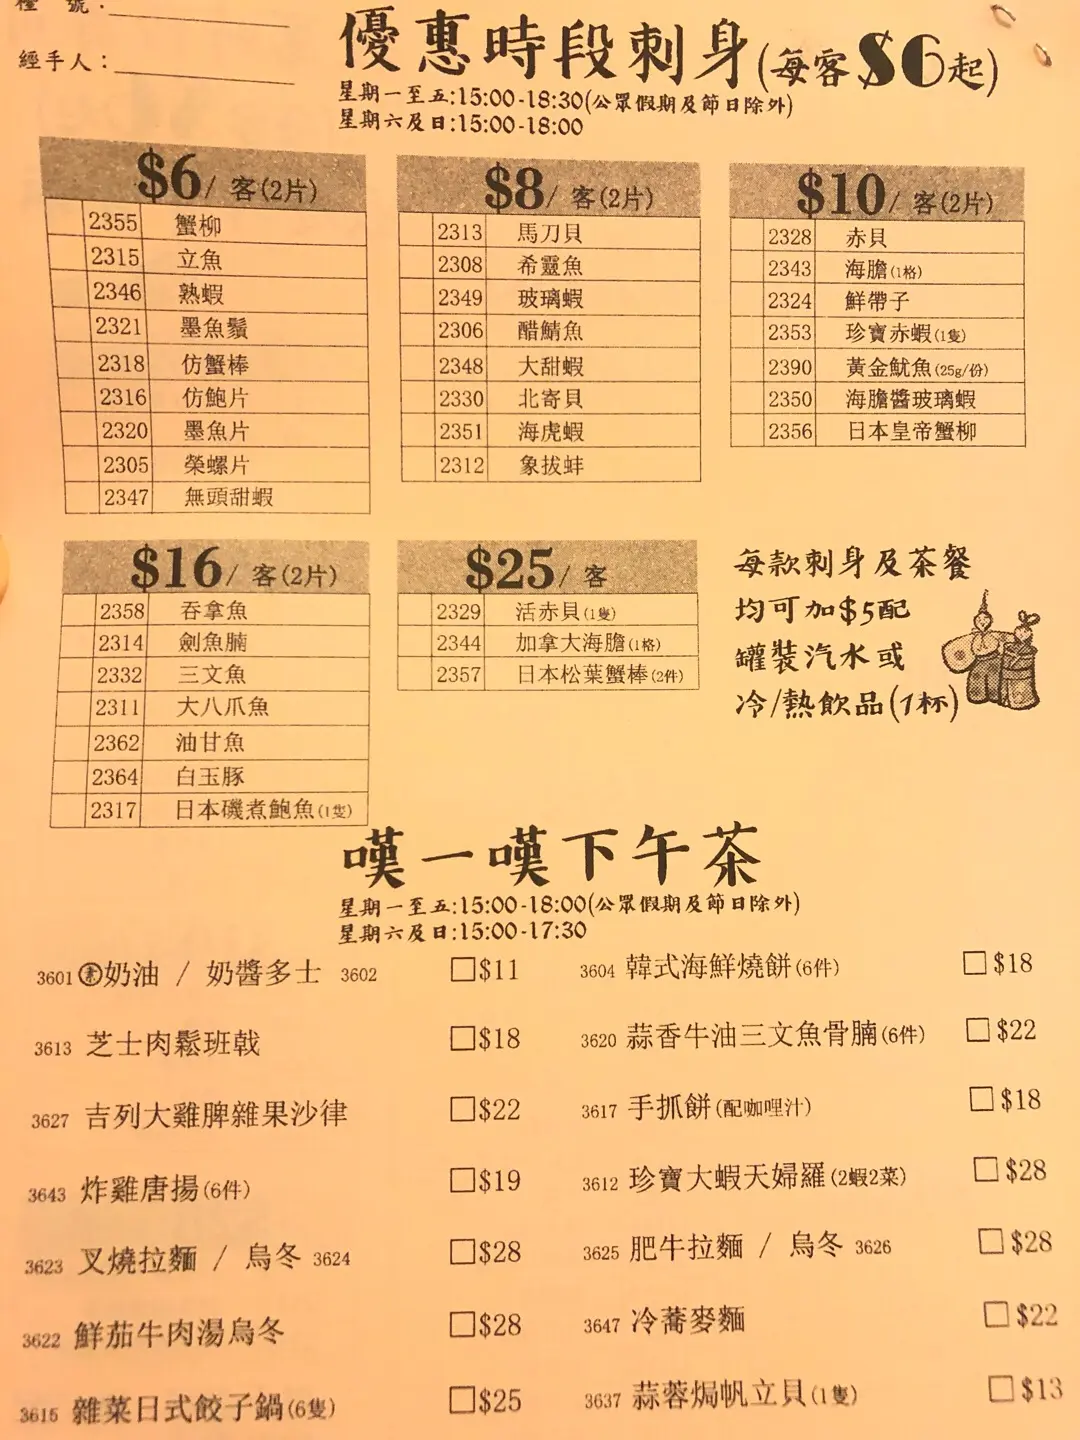 檯 號：
經手人：
優惠時段刺身(每客$6起)
星期一至五:15:00-18:30(公眾假期及節日除外)
星期六及日:15:00-18:00
$6/ 客(2片)
2355 蟹柳
2315 立魚
2346 熟蝦
2321 墨魚鬚
2318 仿蟹棒
2316 仿鮑片
2320 墨魚片
2305 榮螺片
2347 無頭甜蝦
$8/ 客(2片)
2313 馬刀貝
2308 希靈魚
2349 玻璃蝦
2306 醋鯖魚
2348 大甜蝦
2330 北寄貝
2351 海虎蝦
2312 象拔蚌
$10/ 客(2片)
2328 赤貝
2343 海膽(1格)
2324 鮮帶子
2353 珍寶赤蝦(1隻)
2390 黃金魷魚(25g/份)
2350 海膽醬玻璃蝦
2356 日本皇帝蟹柳
$16/ 客(2片)
2358 吞拿魚
2314 劍魚腩
2332 三文魚
2311 大八爪魚
2362 油甘魚
2364 白玉豚
2317 日本磯煮鮑魚(1隻)
$25/ 客
2329 活赤貝(1隻)
2344 加拿大海膽(1格)
2357 日本松葉蟹棒(2件)
每款刺身及茶餐
均可加$5配
罐裝汽水或
冷/熱飲品(1杯)
嘆一嘆下午茶
星期一至五:15:00-18:00(公眾假期及節日除外)
星期六及日:15:00-17:30
3601 素 奶油 / 奶醬多士 3602 □$11
3604 韓式海鮮燒餅(6件) □$18
3613 芝士肉鬆班戟 □$18
3620 蒜香牛油三文魚骨腩(6件) □$22
3627 吉列大雞脾雜果沙律 □$22
3617 手抓餅(配咖哩汁) □$18
3643 炸雞唐揚(6件) □$19
3612 珍寶大蝦天婦羅(2蝦2菜) □$28
3623 叉燒拉麵 / 烏冬 3624 □$28
3625 肥牛拉麵 / 烏冬 3626 □$28
3622 鮮茄牛肉湯烏冬 □$28
3647 冷蕎麥麵 □$22
3615 雜菜日式餃子鍋(6隻) □$25
3637 蒜蓉焗帆立貝(1隻) □$13